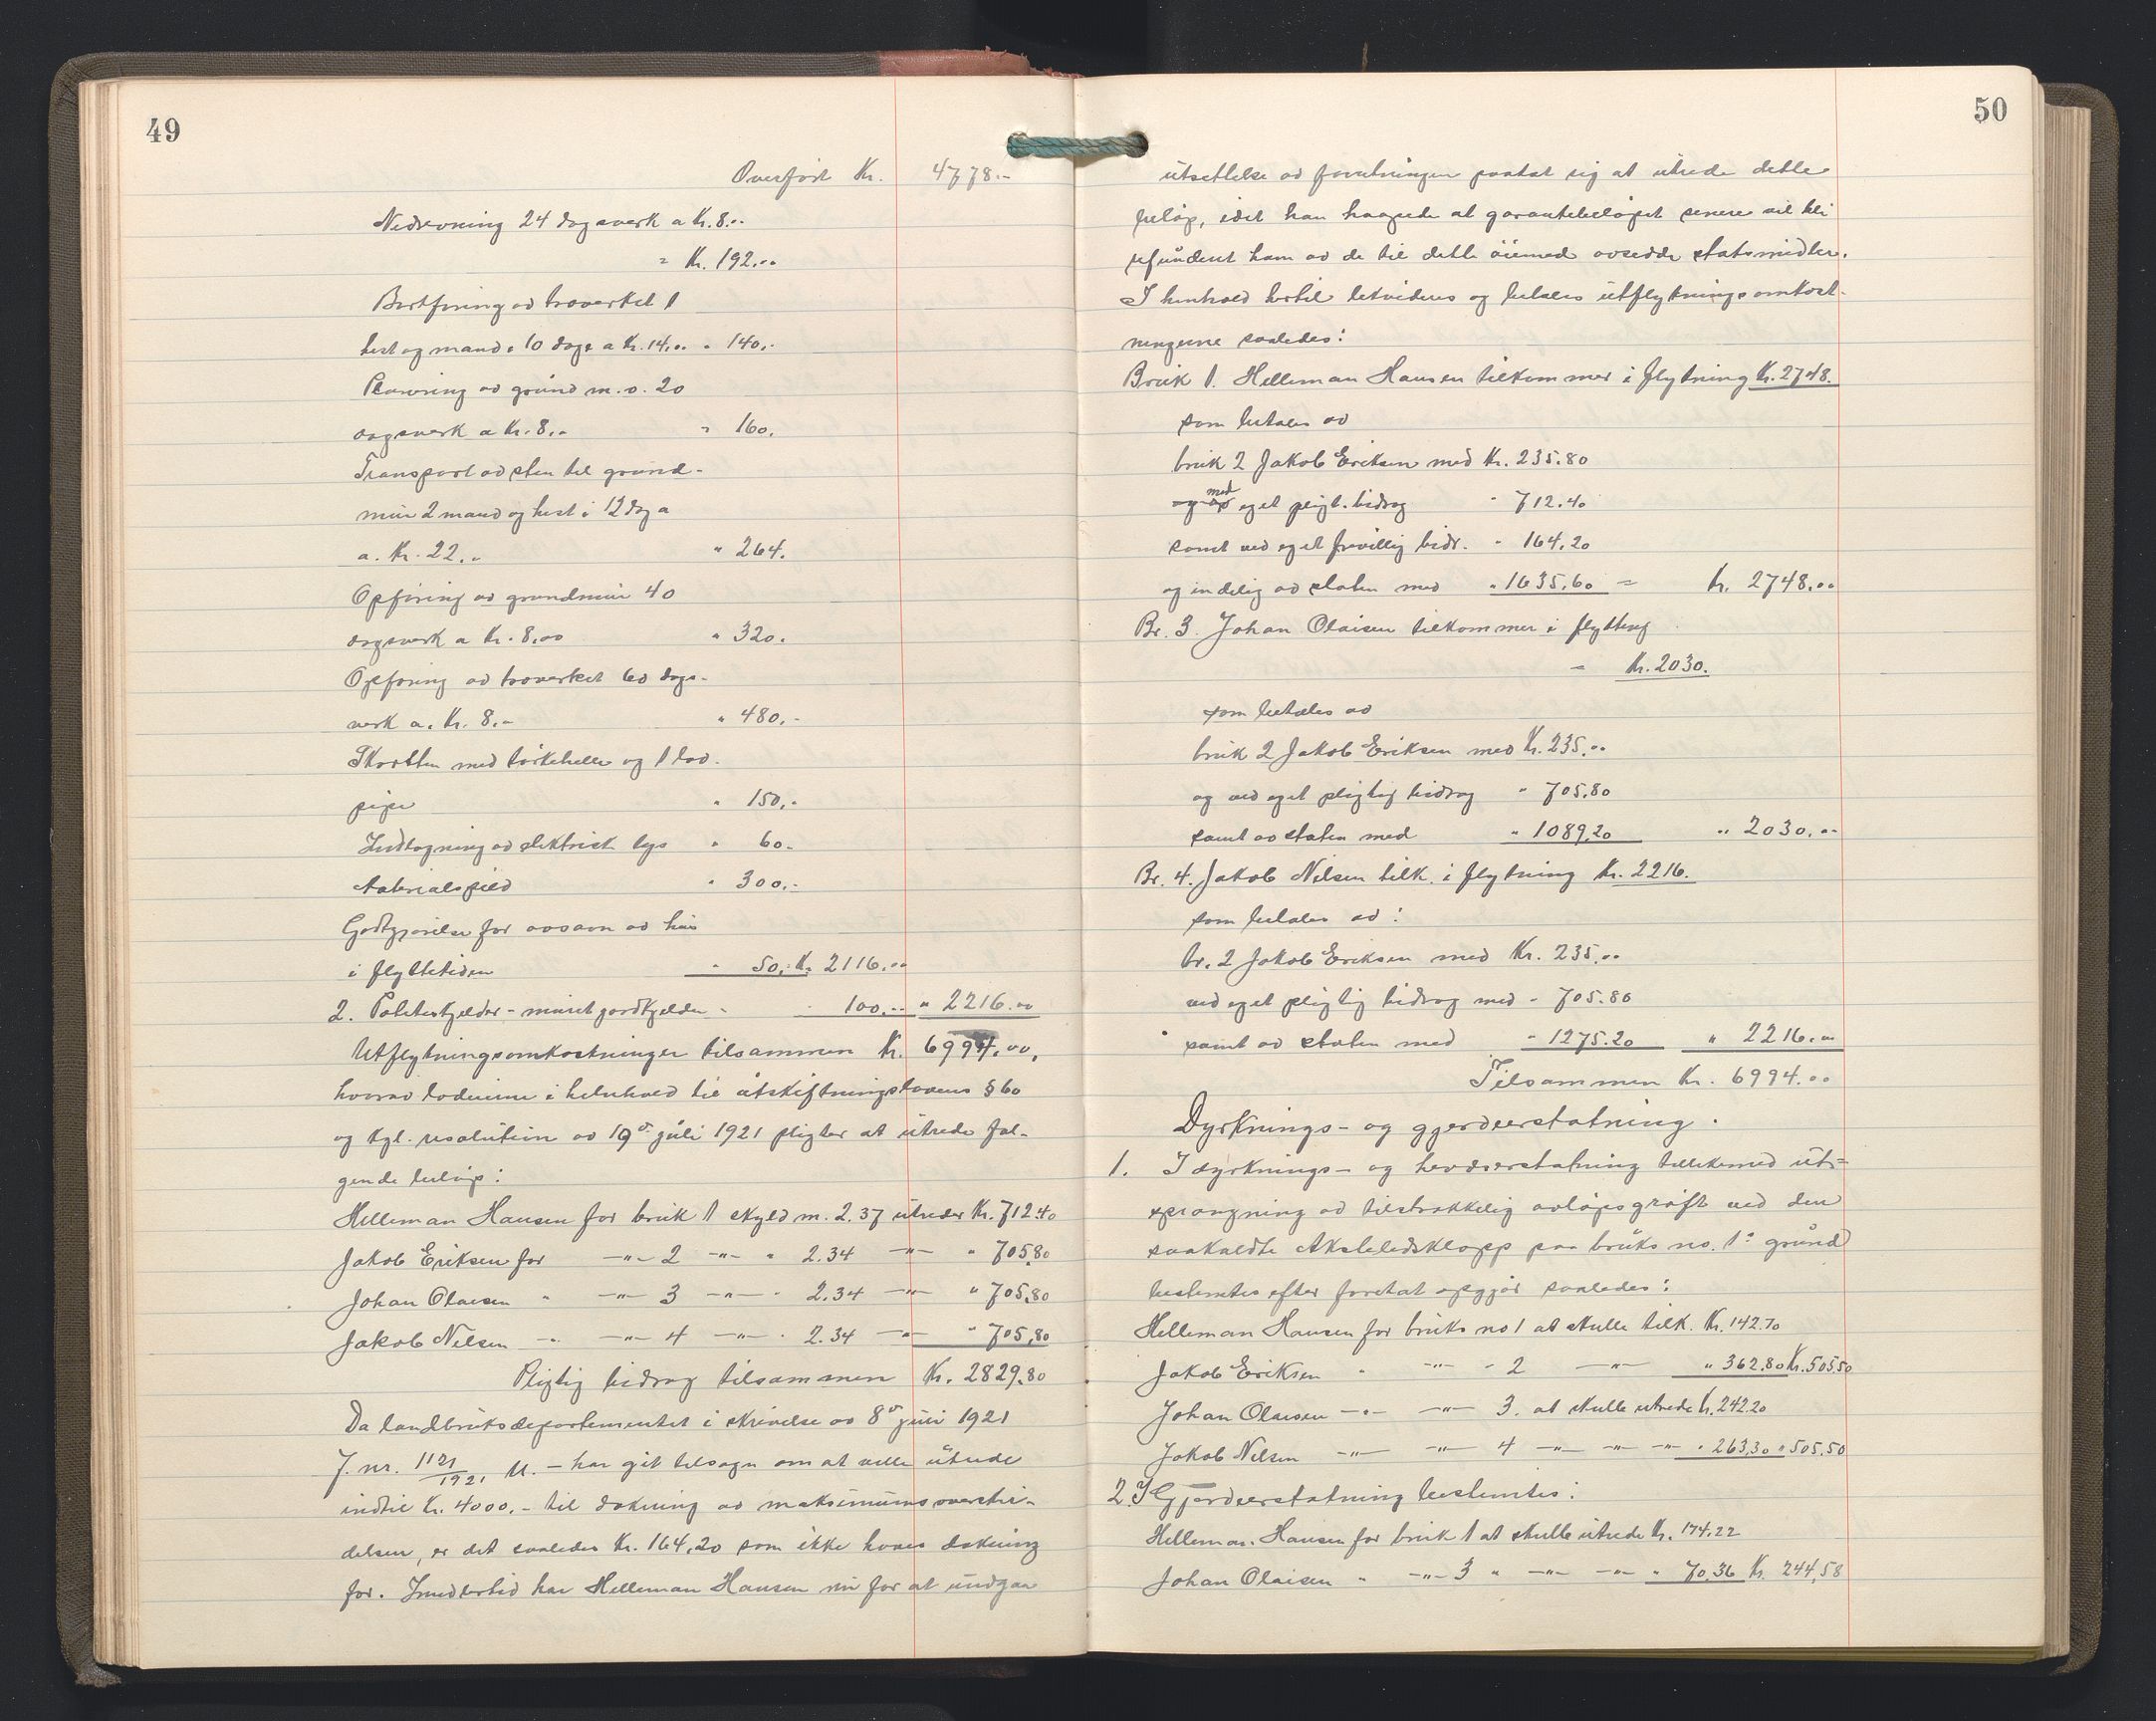 49
Overført Kr. 4778.-
Nedrevning 24 dagsverk a Kr. 8.-
= Kr. 192.00
Bortføring av traverket 1
hest og mand i 10 dage a Kr. 14.00 " 140.-
Planering av grund m. v. 20
dagsverk a Kr. 8.- " 160.
Transport av sten til grund-
mur 2 mand og hest i 12 dag a
a. Kr. 22.- " 264.
Opføring av grundmur 40
dagsverk a Kr. 8.00 " 320.
Opføring av traverket 60 dags-
verk a. Kr. 8.- " 480.-
Skorsten med tørkehelle og 1 lav.
pipe " 150.-
Indlægning av elektrisk lys " 60.-
Materialspild " 300.-
Godtgjørelse for avsavn av hus
i flyttetiden " 50.- Kr. 2116.00
2. Poteteskjelder - muret jordkjelder - 100.- " 2216.00
Utflytningsomkostninger tilsammen Kr. 6994.00,
hvorav loderne i henhold til utskiftningslovens § 60
og kgl. resolution av 19de juli 1921 pligter at utrede føl-
gende beløp:
Helleman Hansen for bruk 1 skyld m. 2.37 utreder Kr. 712.40
Jakob Eriksen for -"- 2 -"- " 2.34 -"- " 705.80
Johan Olaisen " -"- 3 -"- " 2.34 -"- " 705.80
Jakob Nilsen -"- -"- 4 -"- " 2.34 -"- " 705.80
Pligtig bidrag tilsammen Kr. 2829.80
Da landbruksdepartementet i skrivelse av 8de juni 1921
J. nr. 1121/1921 U. - har git tilsagn om at ville utrede
indtil Kr. 4000.- til dækning av maksimumsoverskri-
delsen, er det saaledes Kr. 164,20 som ikke haves dækning
for. Imidlertid har Helleman Hansen nu for at undgaa
50
utsettelse av forretningen paatat sig at utrede dette
beløp, idet han haapede at garantibeløpet senere vil bli
refundert ham av de til dette øiemed avsedde statsmidler.
I henhold hertil likvideres og betales utflytningsomkost-
ningerne saaledes:
Bruk 1. Helleman Hansen tilkommer i flytning Kr. 2748.
som betales av
bruk 2 Jakob Eriksen med Kr. 235.80
og med eget pligt. bidrag " 712.40
samt ved eget frivillig bidr. " 164.20
og endelig av staten med " 1635.60 = Kr. 2748.00
Br. 3. Johan Olaisen tilkommer i flytting
- Kr. 2030.
som betales av
bruk 2 Jakob Eriksen med Kr. 235.00
og ved eget pligtig bidrag " 705.80
samt av staten med " 1089.20 " 2030.00
Br. 4. Jakob Nilsen tilk. i flytning Kr. 2216.
som betales av:
br. 2 Jakob Eriksen med Kr. 235.00
ved eget pligtig bidrag med " 705.80
samt av staten med " 1275.20 " 2216.00
Tilsammen Kr. 6994.00
Dyrknings- og gjerdeerstatning.
1. I dyrknings- og hevdserstatning tillikemed ut-
sprængning av tilstrækkelig avløpsgrøft ved den
saakaldte Aksleledsklopp paa bruks no. 1s grund
bestemtes efter foretat opgjør saaledes:
Helleman Hansen for bruks no 1 at skulle tilk. Kr. 142.70
Jakob Eriksen " -"- " 2 -"- " 362.80 Kr. 505.50
Johan Olaisen -"- -"- 3. at skulle utrede Kr. 242.20
Jakob Nilsen -"- -"- 4 -"- -"- -"- " 263.30 " 505.50
2. I Gjerdeerstatning bestemtes:
Helleman Hansen for bruk 1 at skulle utrede Kr. 174.22
Johan Olaisen " -"- 3 " -"- -"- " 70.36 Kr. 244,58